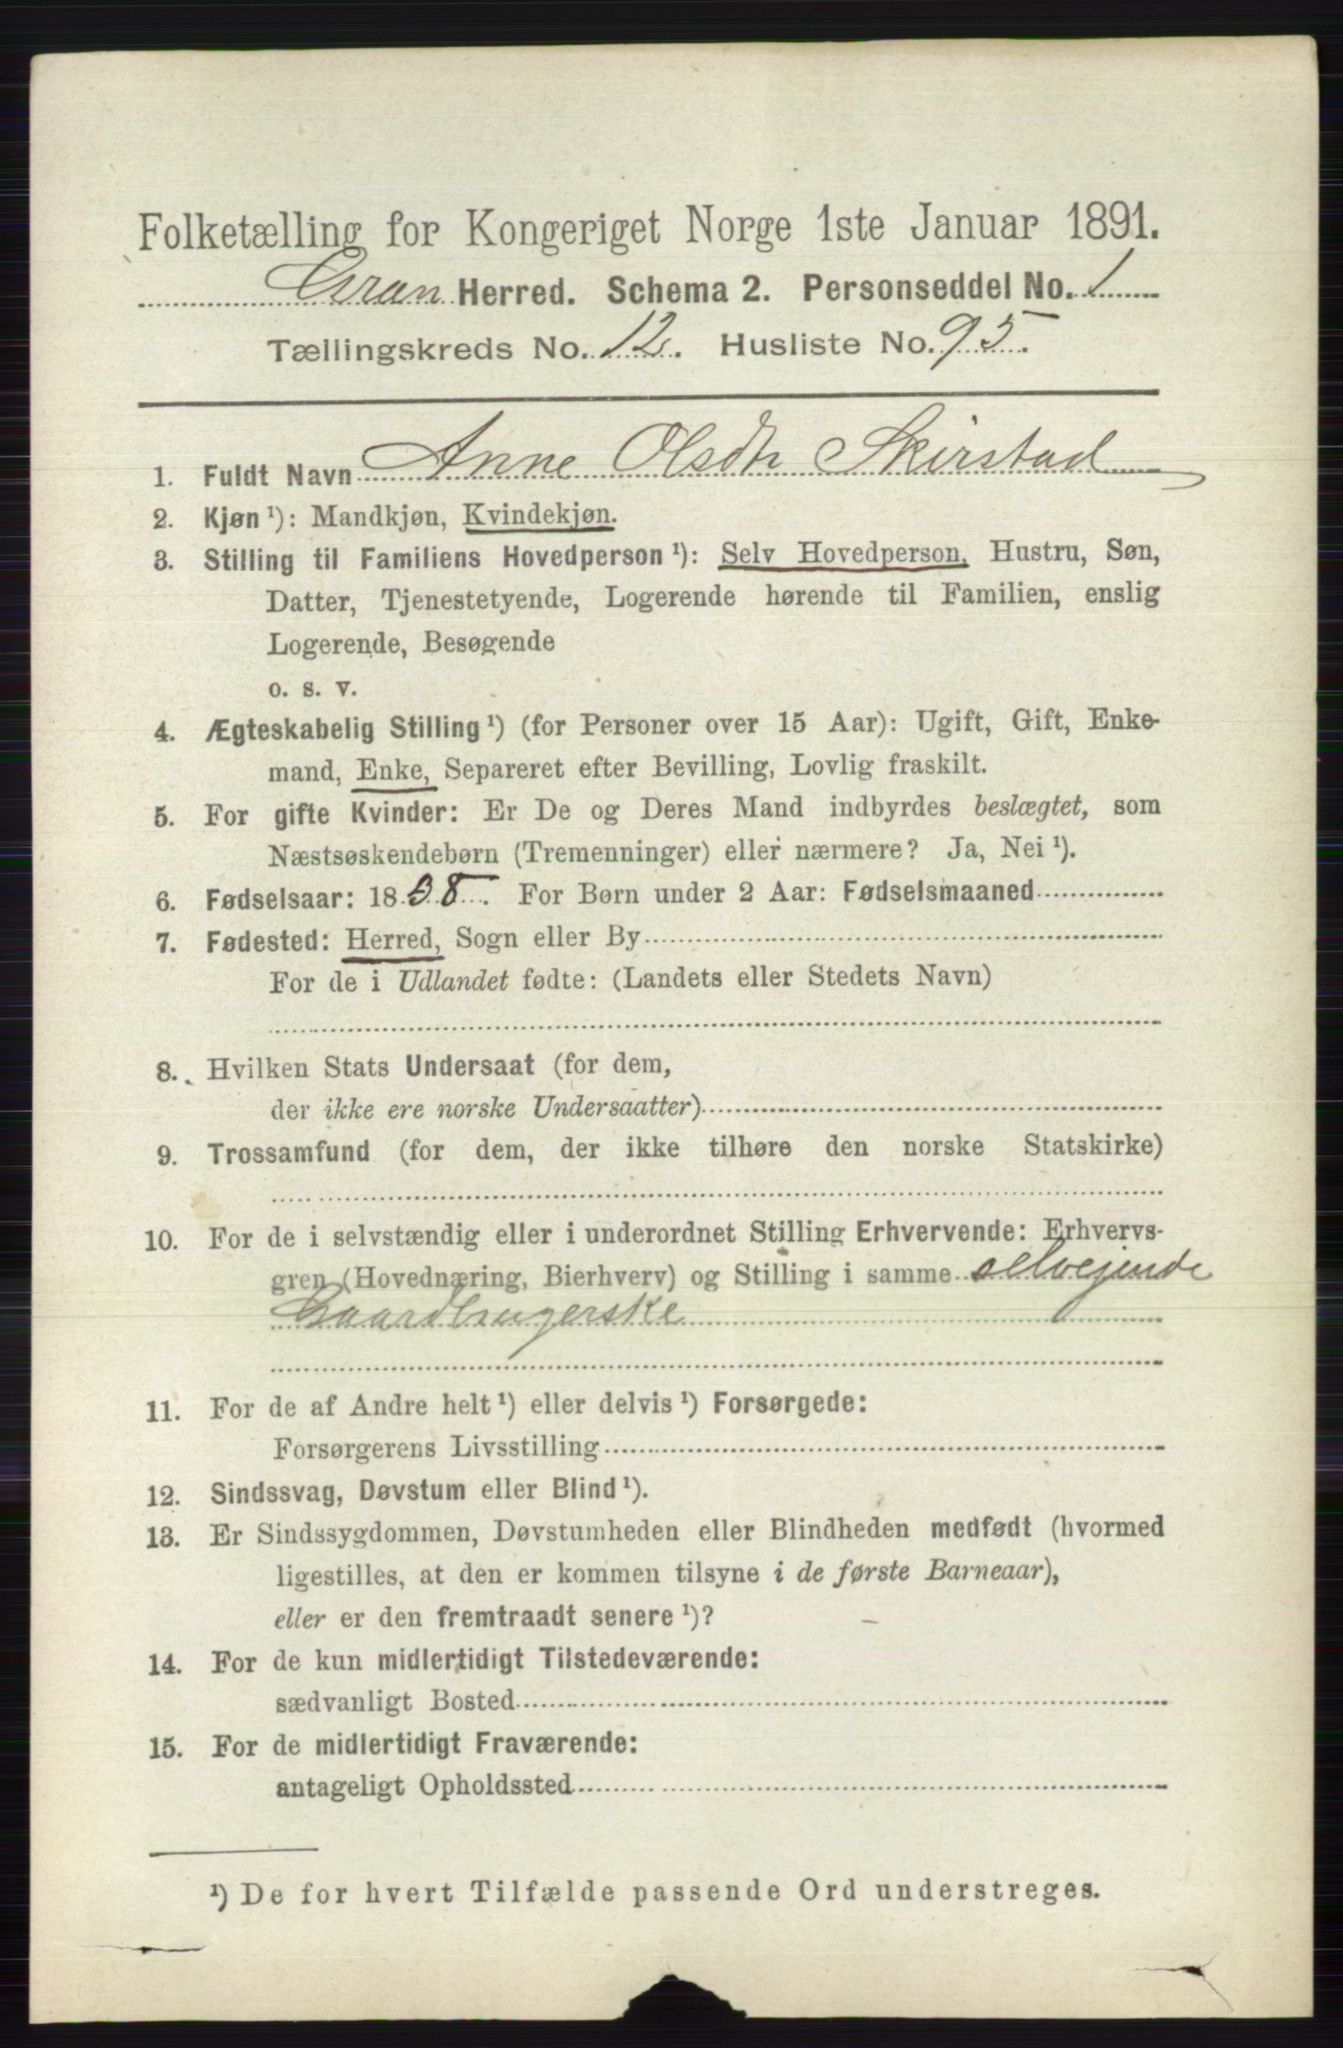 Folketælling for Kongeriget Norge 1ste Januar 1891.
Gran Herred. Schema 2. Personseddel No. 1
Tællingskreds No. 12. Husliste No. 95.
1. Fuldt Navn Anne Olsdtr Skirstad
2. Kjøn ¹): Mandkjøn, Kvindekjøn.
3. Stilling til Familiens Hovedperson ¹): Selv Hovedperson, Hustru, Søn,
Datter, Tjenestetyende, Logerende hørende til Familien, enslig
Logerende, Besøgende
o. s. v.
4. Ægteskabelig Stilling ¹) (for Personer over 15 Aar): Ugift, Gift, Enke-
mand, Enke, Separeret efter Bevilling, Lovlig fraskilt.
5. For gifte Kvinder: Er De og Deres Mand indbyrdes beslægtet, som
Næstsøskendebørn (Tremenninger) eller nærmere? Ja, Nei ¹).
6. Fødselsaar: 1838. For Børn under 2 Aar: Fødselsmaaned
7. Fødested: Herred, Sogn eller By
For de i Udlandet fødte: (Landets eller Stedets Navn)
8. Hvilken Stats Undersaat (for dem,
der ikke ere norske Undersaatter)
9. Trossamfund (for dem, der ikke tilhøre den norske Statskirke)
10. For de i selvstændig eller i underordnet Stilling Erhvervende: Erhvervs-
gren (Hovednæring, Bierhverv) og Stilling i samme selvejende
Gaardbrugerske
11. For de af Andre helt ¹) eller delvis ¹) Forsørgede:
Forsørgerens Livsstilling
12. Sindssvag, Døvstum eller Blind ¹).
13. Er Sindssygdommen, Døvstumheden eller Blindheden medfødt (hvormed
ligestilles, at den er kommen tilsyne i de første Barneaar),
eller er den fremtraadt senere ¹)?
14. For de kun midlertidigt Tilstedeværende:
sædvanligt Bosted
15. For de midlertidigt Fraværende:
antageligt Opholdssted
¹) De for hvert Tilfælde passende Ord understreges.